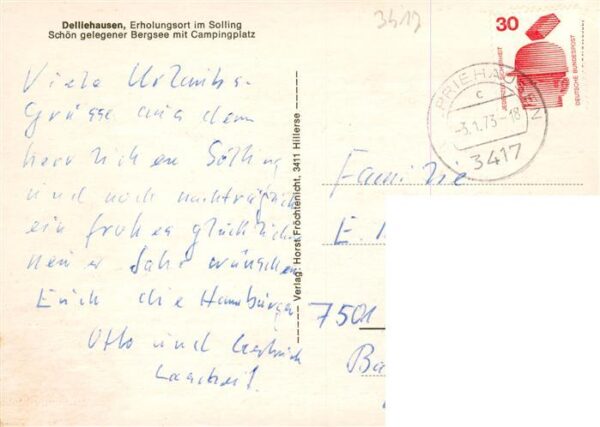 Delliehausen, Erholungsort im Solling
Schön gelegener Bergsee mit Campingplatz
3419
30
JEDERZEIT SICHERHEIT
DEUTSCHE BUNDESPOST
c
-3.1.73-18
3417
Viele Urlaubs-
Grüsse aus dem
herrlichen Solling
und noch nachträglich
ein frohes glückliches
neues Jahr wünschen
Euch die Hamburger
Otto und
Verlag: Horst Fröchtenicht, 3411 Hillerse
Familie
E.
7501
Ba